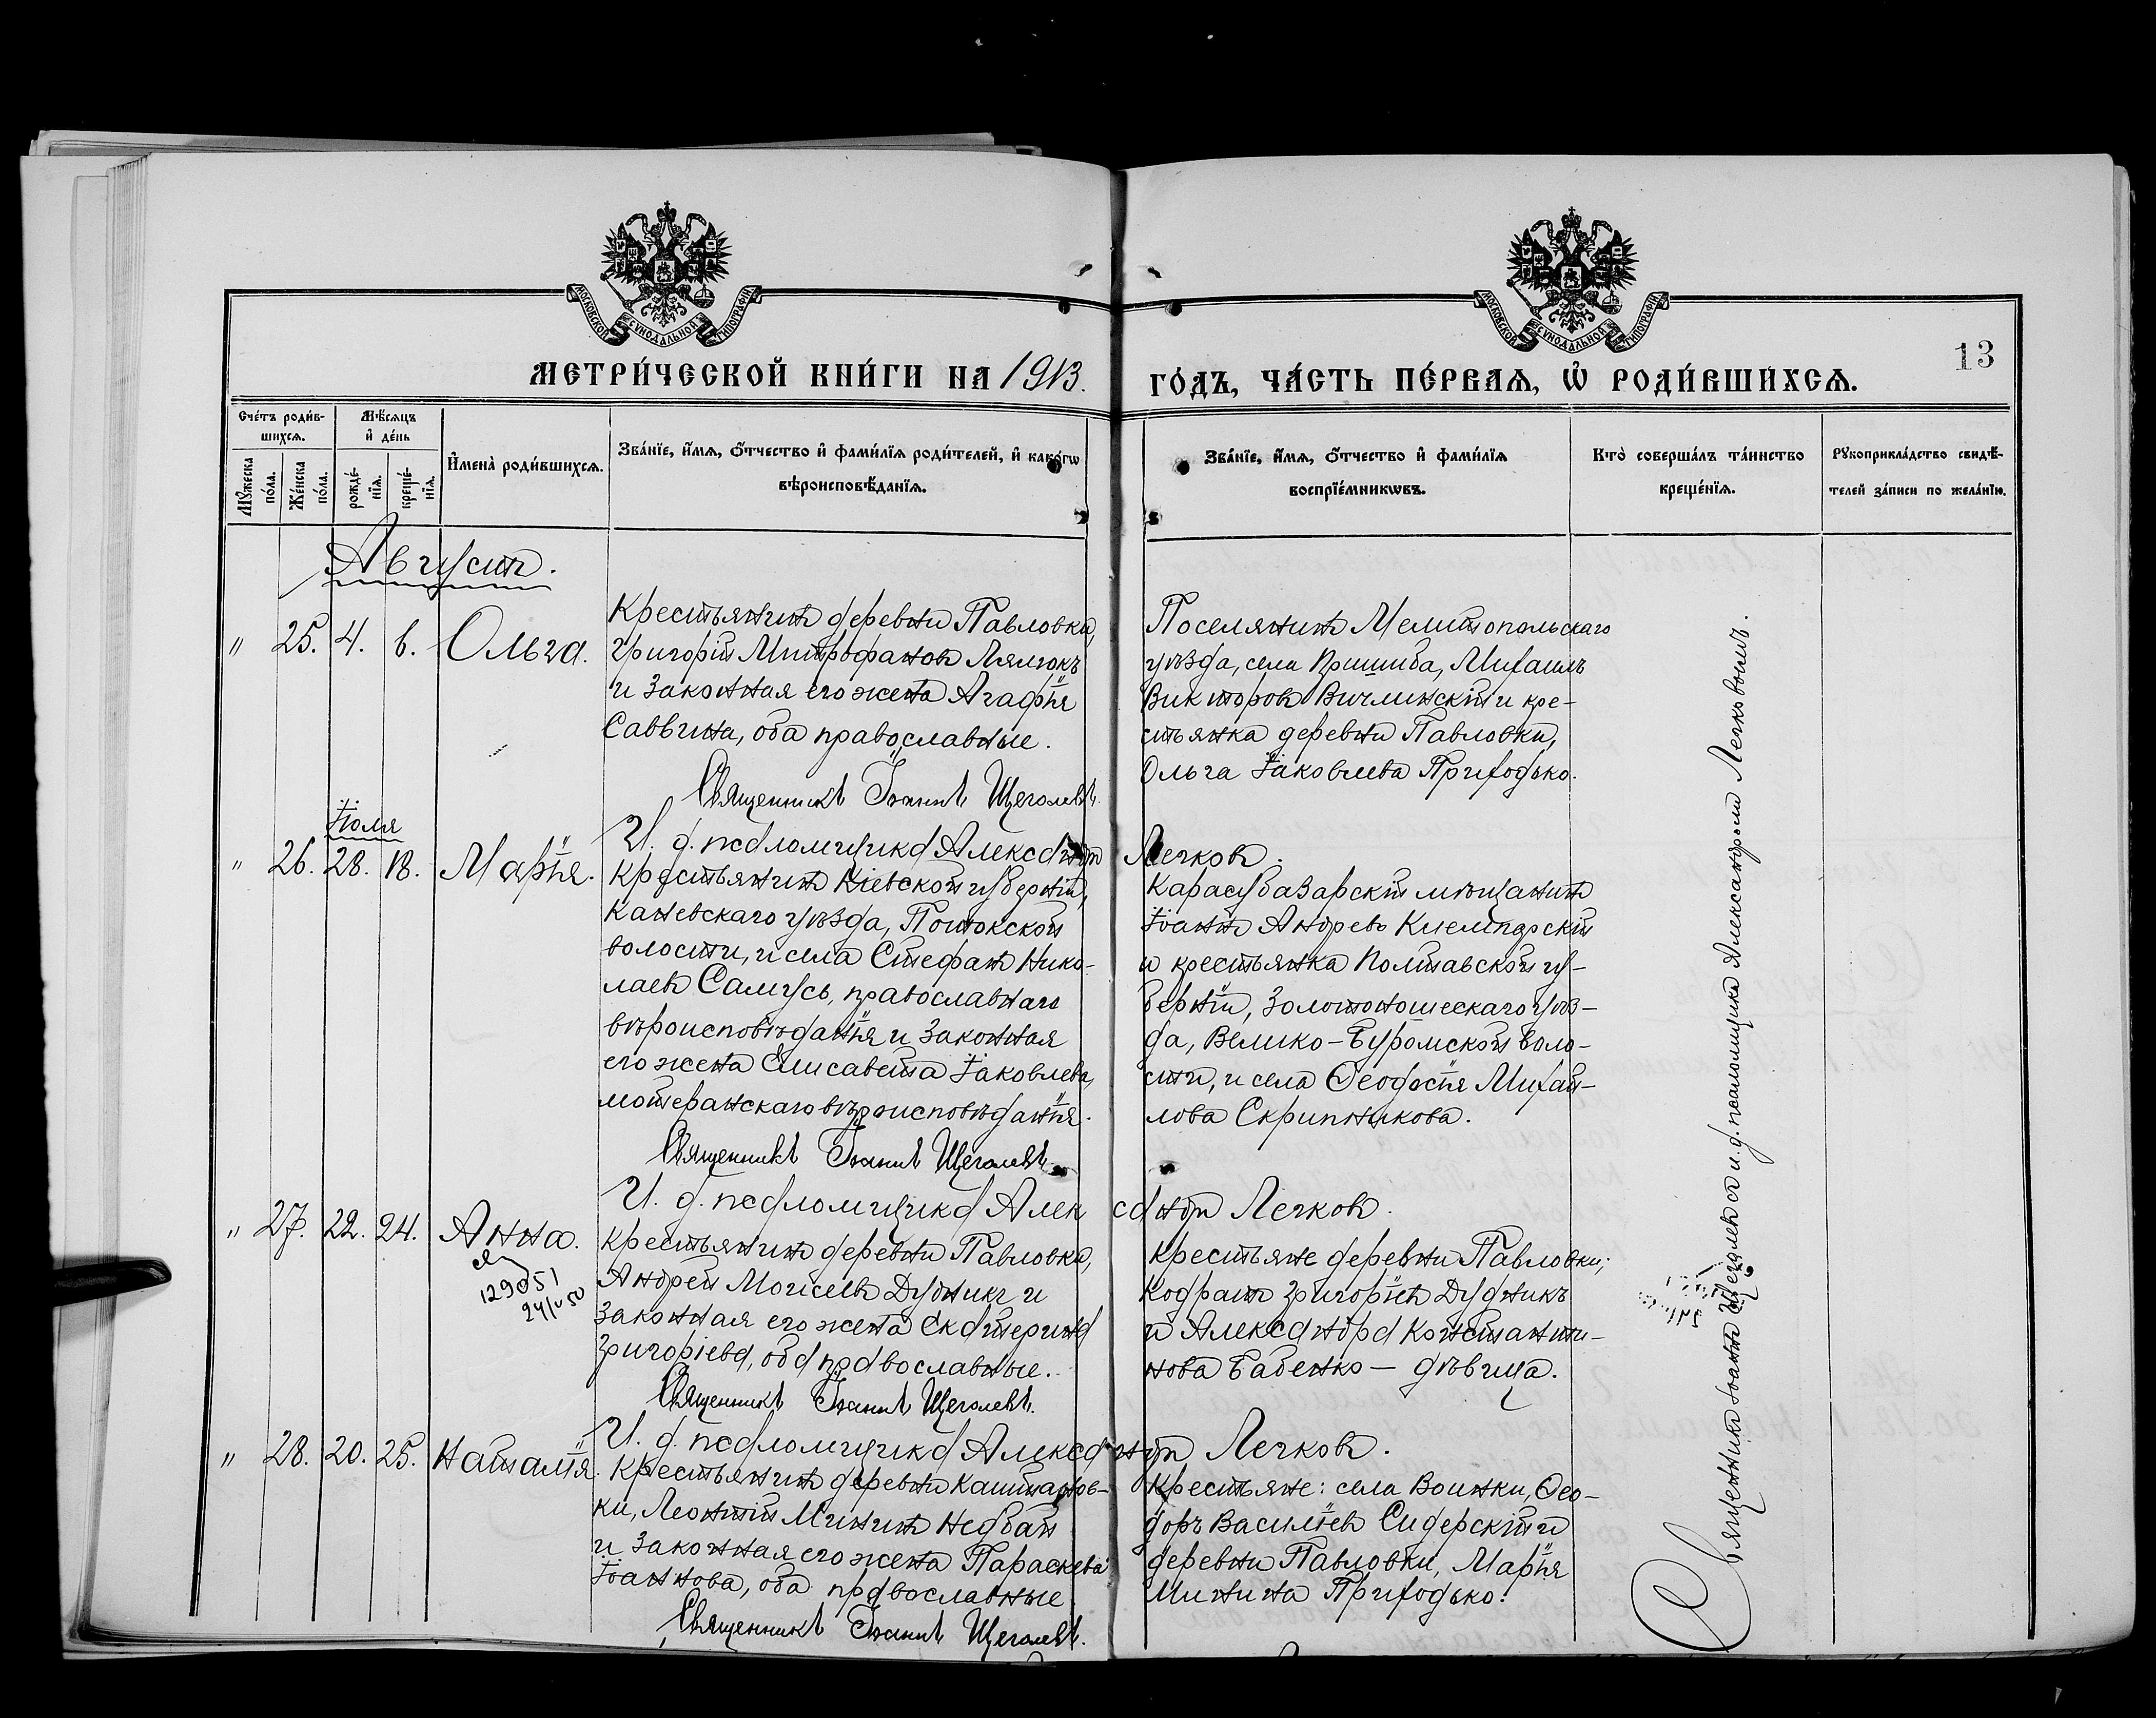 МОСКОВСКОЙ СѴНОДАЛЬНОЙ ТИПОГРАФІИ
МОСКОВСКОЙ СѴНОДАЛЬНОЙ ТИПОГРАФІИ
13
МЕТРИ́ЧЕСКОЙ КНИ́ГИ НА 1913. ГО́ДЪ, ЧА́СТЬ ПЕ́РВАѦ, Ѽ РОДИ́ВШИХСѦ.
Сче́тъ роди́в-
шихсѧ.
Мꙋ́жеска по́ла.
Же́нска по́ла.
Мѣ́сѧцъ
и҆ де́нь
рожде́-
нїѧ.
креще́-
нїѧ.
И҆мена̀ роди́вшихсѧ.
Зва́нїе, и҆́мѧ, ѻ҆́тчество и҆ фами́лїѧ роди́телей, и҆ како́гѡ
вѣроисповѣ́данїѧ.
Зва́нїе, и҆́мѧ, ѻ҆́тчество и҆ фами́лїѧ
воспрїе́мникѡвъ.
Кто̀ соверша́лъ та́инство
креще́нїѧ.
Рꙋкоприкла́дство свидѣ́-
телей за́писи по жела́нїю.
Августъ.
" 25. 4. 6. Ольга.
Крестьянинъ деревни Павловки,
Григорій Митрофановъ
и законная его жена Агафія
Саввина, оба православные.
Священникъ Іоаннъ Щеголевъ.
Поселянинъ Мелитопольскаго
уѣзда, села Пришиба, Михаилъ
Викторовъ Вичлинскій и кре-
стьянка деревни Павловки,
Ольга Іаковлева Приходько.
И. д. псаломщика Александръ Легковъ.
Іюля
" 26. 28. 18. Марія.
Крестьянинъ Кіевской губерніи,
Каневскаго уѣзда, Потокской
волости, и села Стефанъ Нико-
лаевъ Самусь, православнаго
вѣроисповѣданія и законная
его жена Елисавета Іаковлева,
лютеранскаго вѣроисповѣданія.
Священникъ Іоаннъ Щеголевъ.
Карасубазарскій мѣщанинъ
Іоаннъ Андреевъ
и крестьянка Полтавской гу-
берніи, Золотоношескаго уѣз-
да, Велико-Буромской воло-
сти, и села Ѳеодосія Михай-
лова Скрипникова.
И. д. псаломщика Александръ Легковъ.
" 27. 22. 24. Анна.
129051
24/V 50
Крестьянинъ деревни Павловки,
Андрей Моисеевъ Дудникъ и
законная его жена Екатерина
Григоріева, оба православные.
Священникъ Іоаннъ Щеголевъ.
Крестьяне деревни Павловки;
Кодратъ Григоріевъ Дудникъ
и Александра Константи-
нова Бабенко - дѣвица.
И. д. псаломщика Александръ Легковъ.
" 28. 20. 25. Наталія.
Крестьянинъ деревни Каштановъ-
ки, Леонтій Мининъ Недбай
и законная его жена Параскева
Іоаннова, оба православные
Священникъ Іоаннъ Щеголевъ.
Крестьяне: села Воинки, Ѳео-
доръ Василіевъ Сидерскій и
деревни Павловки, Марія
Минина Приходько.
Священникъ Іоаннъ Щеголевъ съ и. д. псаломщика Александромъ Легковымъ.